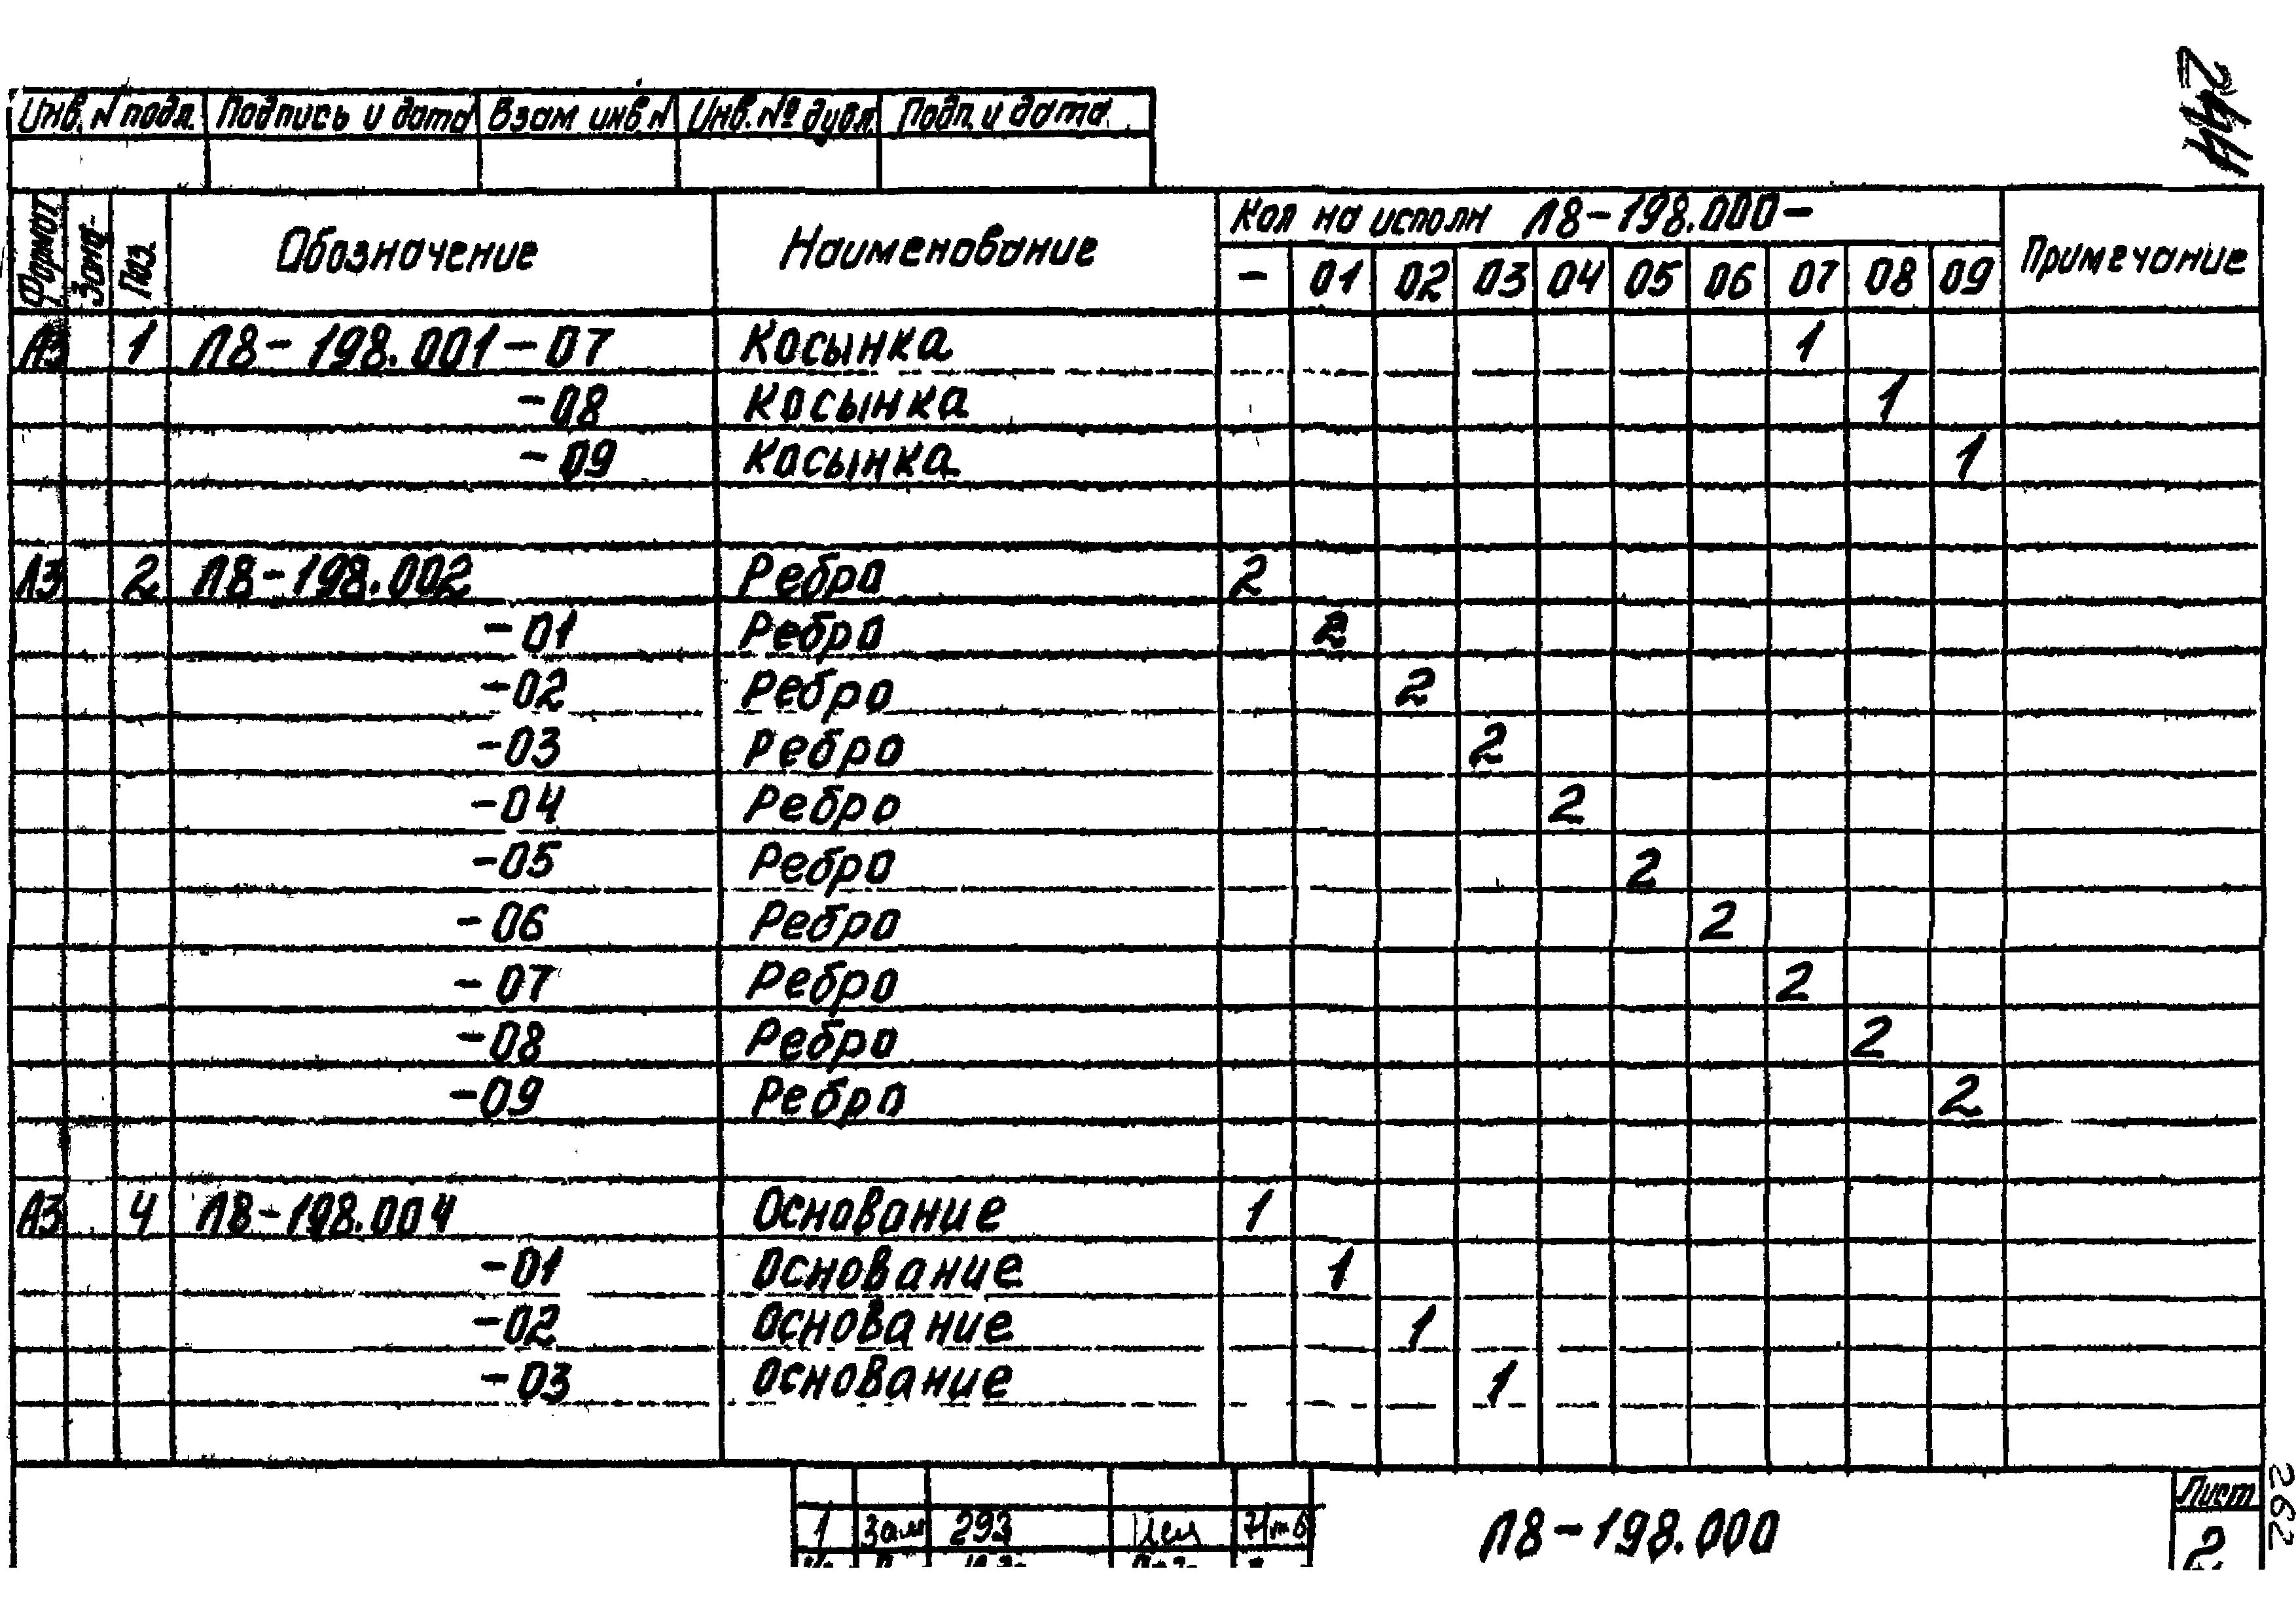 Инв. N подл. Подпись и дата Взам инв N Инв. № дубл. Подп. и дата
Формат Зона Поз. Обозначение Наименование Кол на исполн Л8-198.000- Примечание
- 01 02 03 04 05 06 07 08 09
А3 1 Л8-198.001-07 Косынка 1
-08 Косынка 1
-09 Косынка 1
А3 2 Л8-198.002 Ребро 2
-01 Ребро 2
-02 Ребро 2
-03 Ребро 2
-04 Ребро 2
-05 Ребро 2
-06 Ребро 2
-07 Ребро 2
-08 Ребро 2
-09 Ребро 2
А3 4 Л8-198.004 Основание 1
-01 Основание 1
-02 Основание 1
-03 Основание 1
1 Зам 293
Л8-198.000
Лист
2
262